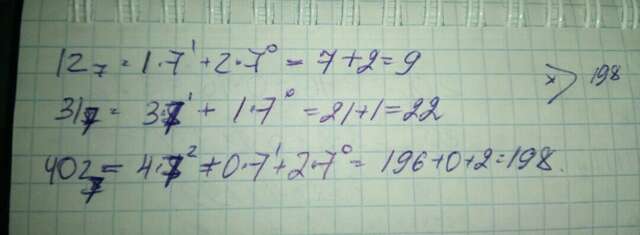 12₇ = 1·7¹ + 2·7⁰ = 7+2=9
31₇ = 3·7¹ + 1·7⁰ = 21+1=22
402₇ = 4·7² + 0·7¹ + 2·7⁰ = 196+0+2=198.
x > 198